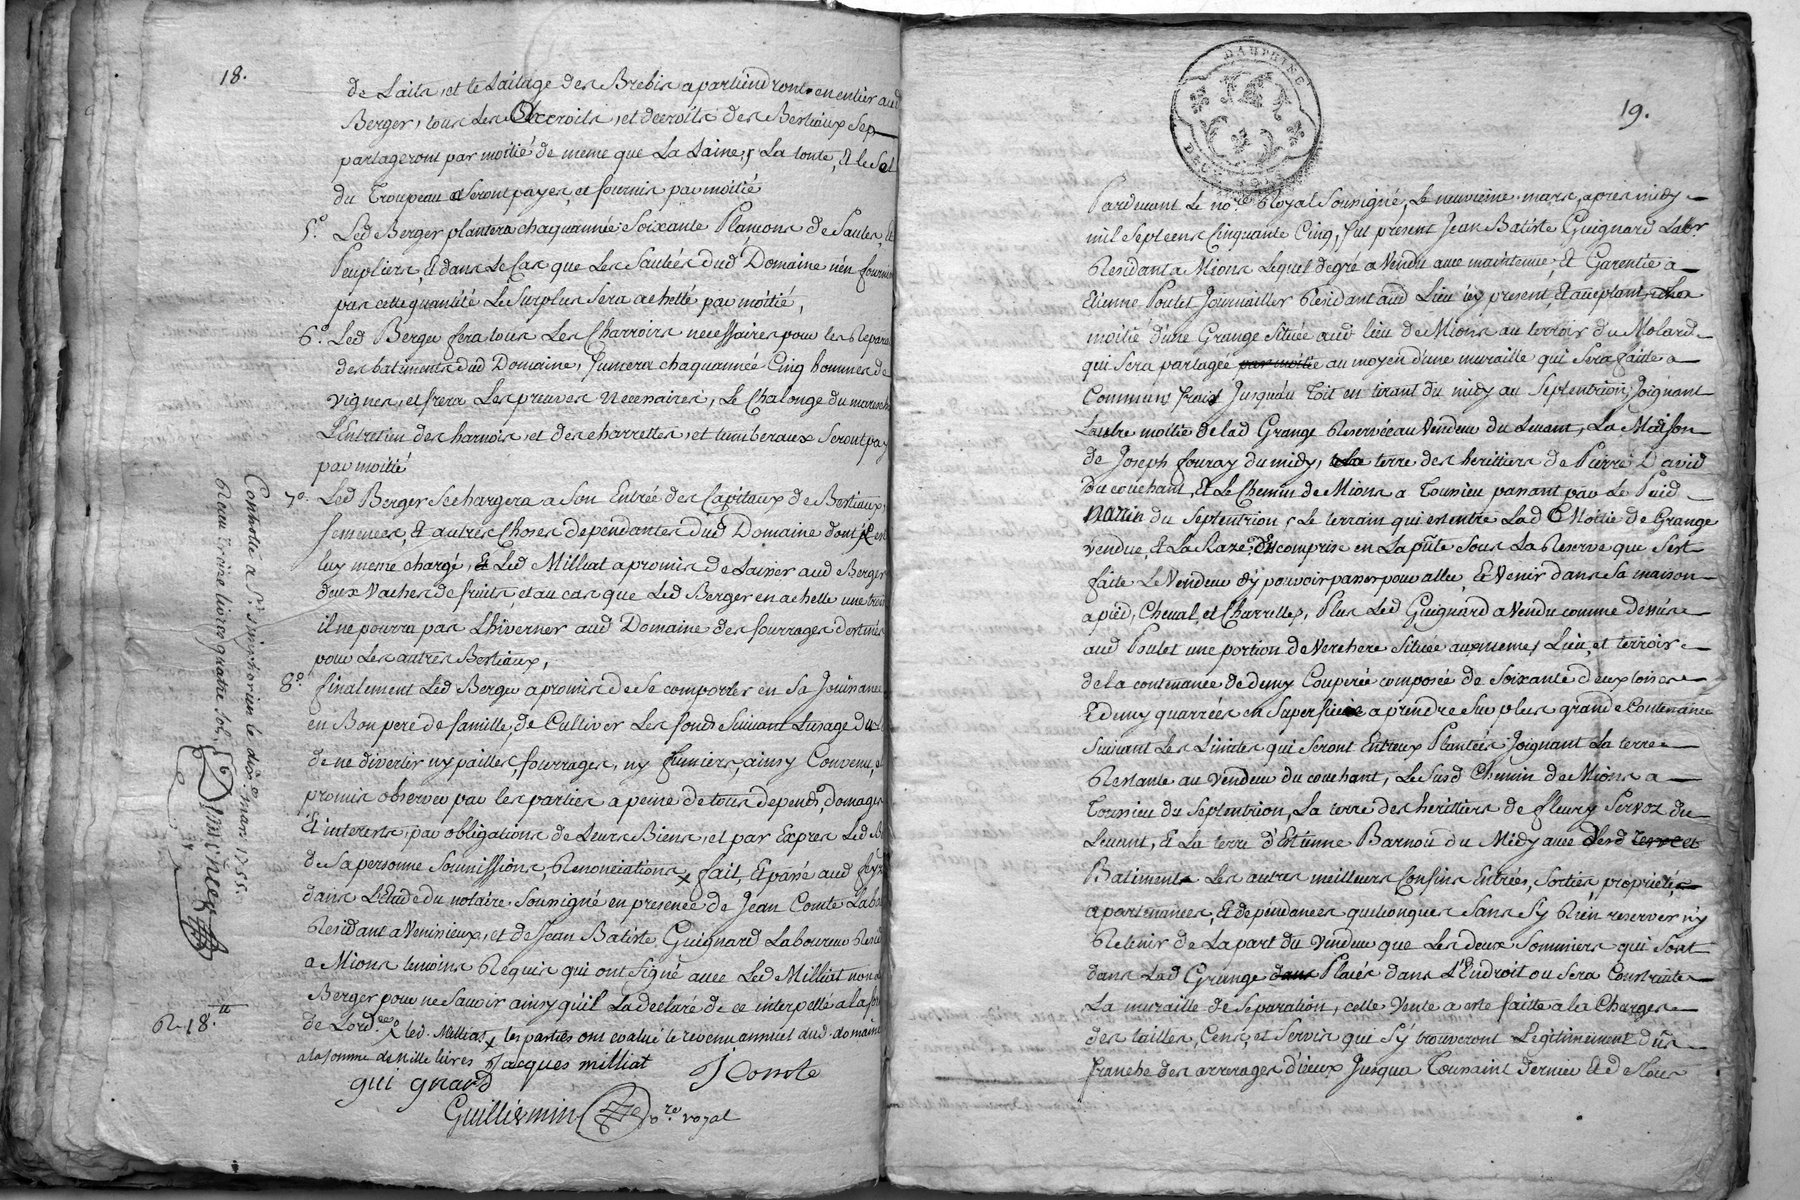 18.
de Laits, et le Laitage des Brebis apartiendront en entier aud
Berger, tous les Accroits, et decroits des Bestiaux Se
partageront par moitié de meme que La Laine, La tonte, Et le Sel
du Troupeau Seront payes, et fournis par moitié
5.° Led Berger plantera chaquannée Soixante Plançons de Saules, Et
Peupliers, Et dans Le Cas que Les Saulées dud Domaine n'en fourni
pas cette quantité Le Surplus Sera achetté par moitié,
6.° Led Berger fera tous Les Charroirs necessaires pour les Repara
des batiments dud Domaine, fumera chaquannée Cinq hommes de
vignes, et fera Les preuves Necessaires, Le Chalonge du marech
L'Entretien des harnois, et des charrettes, et tumberaux Seront pay
par moitié
7.° Led Berger Se chargera a Son Entrée des Capitaux de Bestiaux,
semences, Et autres Choses dependantes dud Domaine dont il est
luy meme chargé, Et Led Milliat a promis de Laisser aud Berger
deux Vaches de fruits, et au cas que Led Berger en achette une trois
il ne pourra pas L'hiverner aud Domaine des fourrages destinés
pour Les autres Bestiaux,
8.° finalement Led Berger a promis de Se comporter en Sa Jouissance
en Bon pere de famille, de Cultiver Les fonds Suivant Lusage du
de ne divertir ny pailles, fourrages, ny fumiers, ainsy Convenu, Et
promis observer par les parties a peine de tous depends, domages
Et interests, par obligations de Leurs Biens, et par Expres Led Be
de Sa personne Soumissions, Renonciations, fait, Et passé aud feyz
dans L'Etude du notaire Sousigné en presence de Jean Comte Labou
Residant a Venissieux, et de Jean Batiste Guignard Laboureur Resid
a Mions temoins Requis qui ont Signé avec Led Milliat non le
Berger pour ne Savoir ainsy qu'il La declaré de ce interpellé a la for
de Lord.ce led. Milliat les parties ont evalué le revenu annuel dud. domaine
a la somme de Mille livres Jacques milliat J Comte
gui gnard
Guilliermin no.re royal
Controllé a S.t Simphorien le dix.e mars 1755.
Receu treize livres quatre sols
R 18.tt
19.
DAUPHINE
DEUX
Pardevant Le no.re Royal Sousigné, Le neuvieme mars, apres midy
mil Sept cens Cinquante Cinq, fut present Jean Batiste Guignard Labr.
Residant a Mions Lequel de gré a Vendu avec maintenue, Et Garentie a
Etienne Poulet Journallier Residant aud Lieu icy present, Et acceptant, La
moitié d'une Grange Située aud lieu de Mions au terroir du Molard
qui Sera partagée par moitié au moyen d'une muraille qui Sera faite a
Communs fraix Jusqu'au Toit en tirant du midy au Septentrion, Joignant
L'autre moitié de lad Grange Reservée au Vendeur du Levant, La Maison
de Joseph fouray du midy, La terre des heritiers de Pierre David
du couchant, Et Le Chemin de Mions a Toussieu passant par Le Puid
Marin du Septentrion, Le terrain qui est entre Lad Moitié de Grange
vendue, Et La Raze, Est compris en La pnte Sous La Reserve que S'est
faite Le Vendeur d'y pouvoir passer pour aller, Et Venir dans Sa maison
a pied, Cheval, et Charrettes, Plus Led Guignard a Vendu comme dessus
aud Poulet une portion de Verchere Située aux memes Lieu, et terroir
de la contenance de demy Couperée composée de Soixante deux toises
Et demy quarrées en Superficie a prendre Sur plus grande Contenance
Suivant Les Limites qui Seront Entreux Plantées Joignant La terre
Restante au Vendeur du couchant, Le Susd Chemin de Mions a
Toussieu du Septentrion, La terre des heritiers de fleury Servoz du
Levant, Et La terre d'Estienne Barnou du Midy avec Lesd terre et
Batiments Les autres meilleurs Confins Entrées, Sorties, proprietés
apartenances, Et dependances quelconques Sans S'y Rien reserver n'y
Retenir de La part du Vendeur que Les deux Sommiers qui Sont
dans Lad Grange dans Placés dans L'Endroit ou Sera Construite
La muraille de Separation, cette Vente a este faitte a la Charge
des tailles, Cens, et Servis qui S'y trouveront Legitimement dus
franche des arrerages d'iceux Jusqua Toussaint dernier Et de Tous